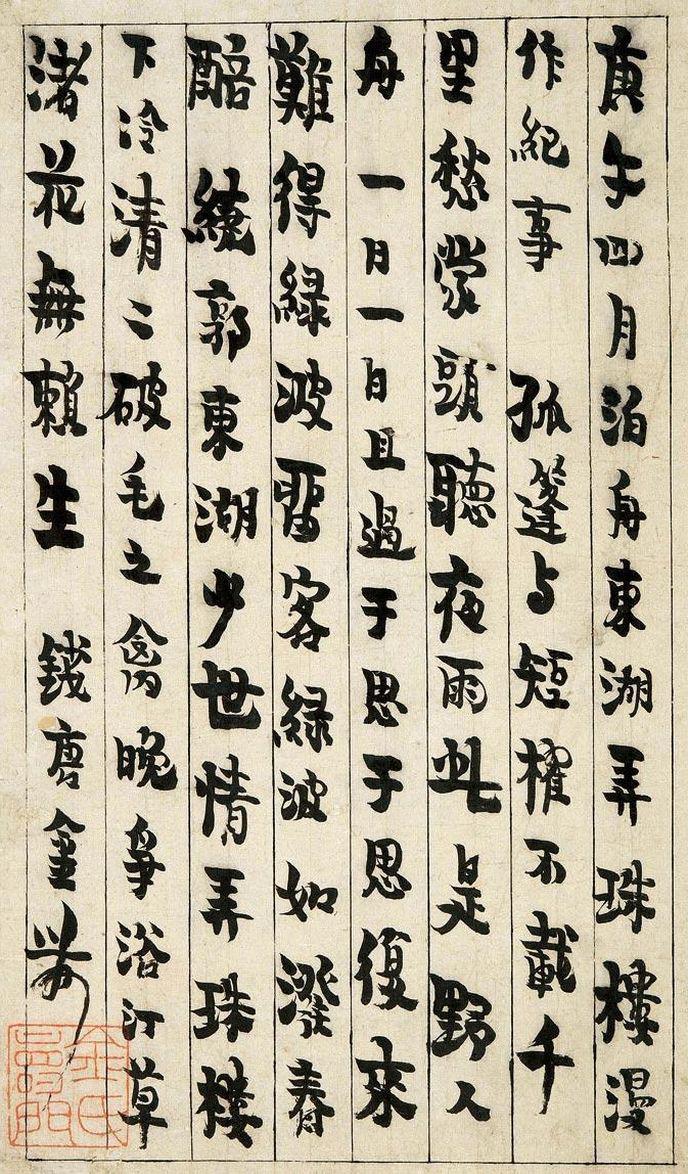 庚午四月泊舟東湖弄珠樓漫
作紀事　孤篷与短櫂不載千
里愁蒙頭聽夜雨此是野人
舟　一日一日且過于思于思復來
難得緑波留客緑波如潑春
醅　繞郭東湖少世情弄珠樓
下冷清〻破毛之禽晚爭浴汀草
渚花無賴生　錢唐金農
金氏壽門